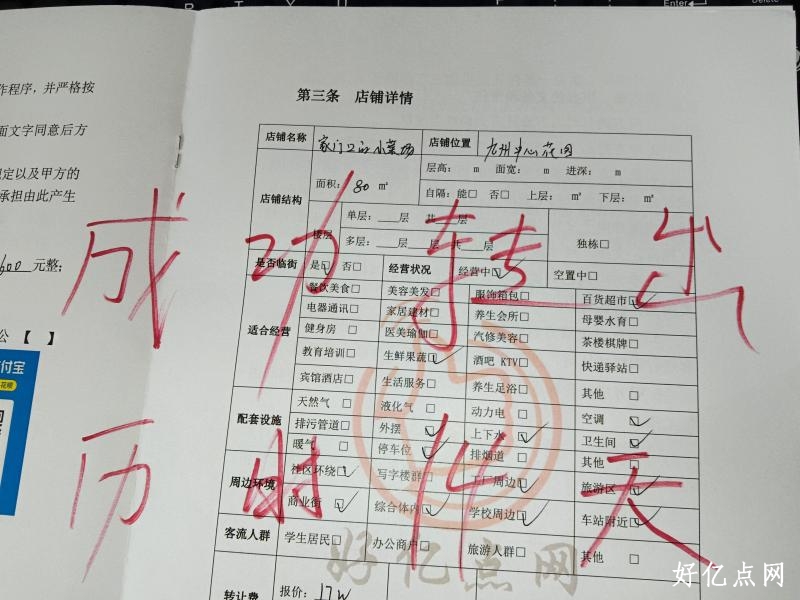 作程序，并严格按
面文字同意后方
规定以及甲方的
承担由此产生
600 元整；
公【 】
付宝
花呗
第三条 店铺详情
店铺名称 家门口的小菜场 店铺位置 九州中心花园
店铺结构 面积：80 ㎡ 层高： m 面宽： m 进深： m
自隔：能□ 否□ 上层： ㎡ 下层： ㎡
楼层 单层：__层 共__层 独栋□
多层：__层__层__层 共__层
是否临街 是☑ 否□ 经营状况 经营中☑ 空置中□
适合经营 餐饮美食□ 美容美发□ 服饰箱包□ 百货超市☑
电器通讯□ 家居建材□ 养生会所□ 母婴水育□
健身房 □ 医美瑜伽□ 汽修美容□ 茶楼棋牌□
教育培训□ 生鲜果蔬☑ 酒吧 KTV□ 快递驿站□
宾馆酒店□ 生活服务□ 养生足浴□ 其他 □
配套设施 天然气 □ 液化气 □ 动力电 □ 空调 ☑
排污管道□ 外摆 ☑ 上下水 ☑ 卫生间 ☑
暖气 □ 停车位 ☑ 排烟道 □ 其他 □
周边环境 社区环绕☑ 写字楼群□ 周边☑ 旅游区 □
商业街 ☑ 综合体内☑ 学校周边☑ 车站附近☑
客流人群 学生居民□ 办公商户□ 旅游人群□ 其他 □
转让费 报价：17W
成功转出
历时14天
好亿点网
好亿点网